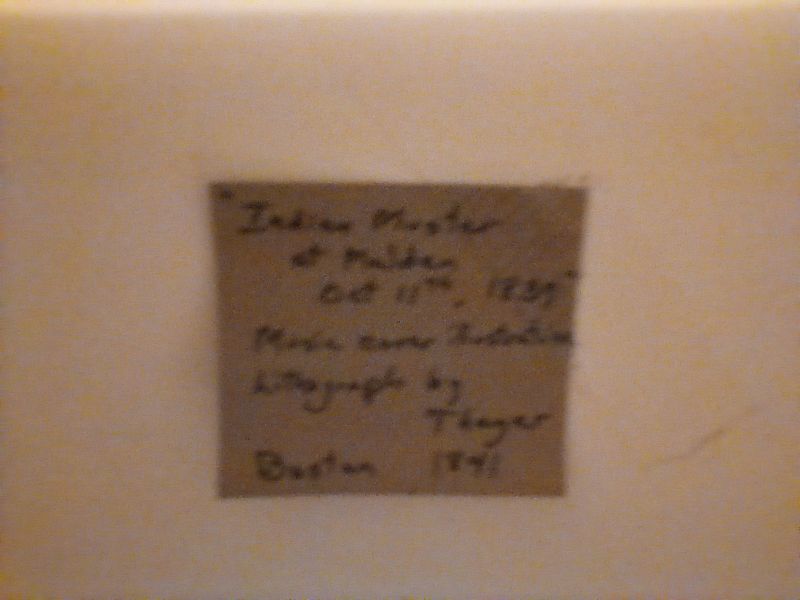 "Indian Muster
at Malden
Oct 11th, 1839"
Music cover Illustration
Lithograph by
Thayer
Boston 1841